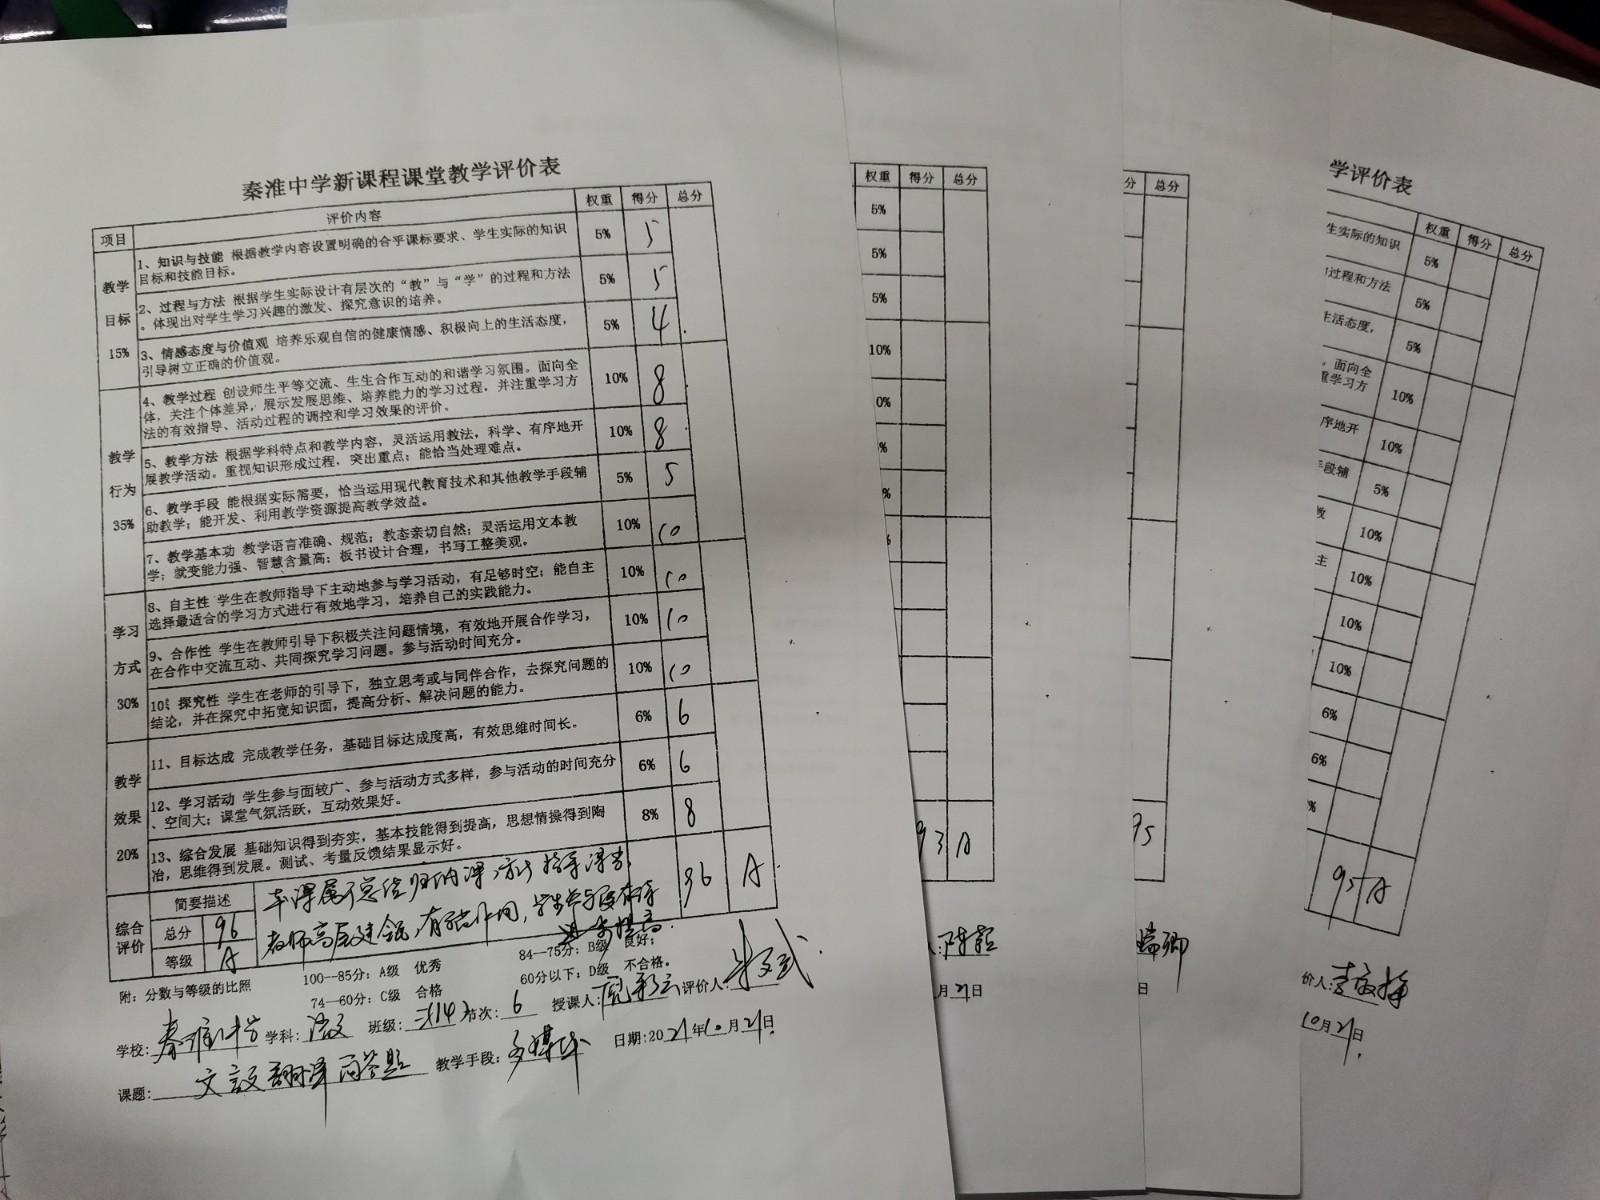 秦淮中学新课程课堂教学评价表
项目 评价内容 权重 得分 总分
教学
目标
15%
1、知识与技能 根据教学内容设置明确的合乎课标要求、学生实际的知识 5% 5
目标和技能目标。
2、过程与方法 根据学生实际设计有层次的“教”与“学”的过程和方法 5% 5
。体现出对学生学习兴趣的激发、探究意识的培养。
3、情感态度与价值观 培养乐观自信的健康情感、积极向上的生活态度， 5% 4
引导树立正确的价值观。
教学
行为
35%
4、教学过程 创设师生平等交流、生生合作互动的和谐学习氛围。面向全 10% 8
体，关注个体差异，展示发展思维、培养能力的学习过程，并注重学习方
法的有效指导、活动过程的调控和学习效果的评价。
5、教学方法 根据学科特点和教学内容，灵活运用教法，科学、有序地开 10% 8
展教学活动。重视知识形成过程，突出重点；能恰当处理难点。
6、教学手段 能根据实际需要，恰当运用现代教育技术和其他教学手段辅 5% 5
助教学；能开发、利用教学资源提高教学效益。
7、教学基本功 教学语言准确、规范；教态亲切自然；灵活运用文本教 10% 10
学；就变能力强、智慧含量高；板书设计合理，书写工整美观。
学习
方式
30%
8、自主性 学生在教师指导下主动地参与学习活动，有足够时空；能自主 10% 10
选择最适合的学习方式进行有效地学习，培养自己的实践能力。
9、合作性 学生在教师引导下积极关注问题情境，有效地开展合作学习， 10% 10
在合作中交流互动、共同探究学习问题。参与活动时间充分。
10、探究性 学生在老师的引导下，独立思考或与同伴合作，去探究问题的 10% 10
结论，并在探究中拓宽知识面，提高分析、解决问题的能力。
教学
效果
20%
11、目标达成 完成教学任务，基础目标达成度高，有效思维时间长。 6% 6
12、学习活动 学生参与面较广、参与活动方式多样，参与活动的时间充分 6% 6
、空间大；课堂气氛活跃，互动效果好。
13、综合发展 基础知识得到夯实，基本技能得到提高，思想情操得到陶 8% 8
冶，思维得到发展。测试、考量反馈结果显示好。
综合
评价
简要描述
本课属于总结归纳课，
教师高屋建瓴，有 学生参与度有待
进一步提高.
96 A
总分 96
等级 A
附：分数与等级的比照
100—85分：A级 优秀
84—75分：B级 良好；
74—60分：C级 合格
60分以下：D级 不合格。
学校：秦淮中学 学科：语文 班级： 节次：6 授课人： 评价人：
课题：文言文翻译 简答题 教学手段：多媒体 日期:2021年10月21日
权重 得分 总分
5%
5%
5%
10%
0%
%
93 A
人：陈
月21日
分 总分
95
日
学评价表
权重 得分 总分
生实际的知识 5%
过程和方法 5%
生活态度， 5%
。面向全 10%
重学习方
序地开 10%
段辅 5%
教 10%
主 10%
10%
10%
6%
6%
%
95 A
价人：
10月21日